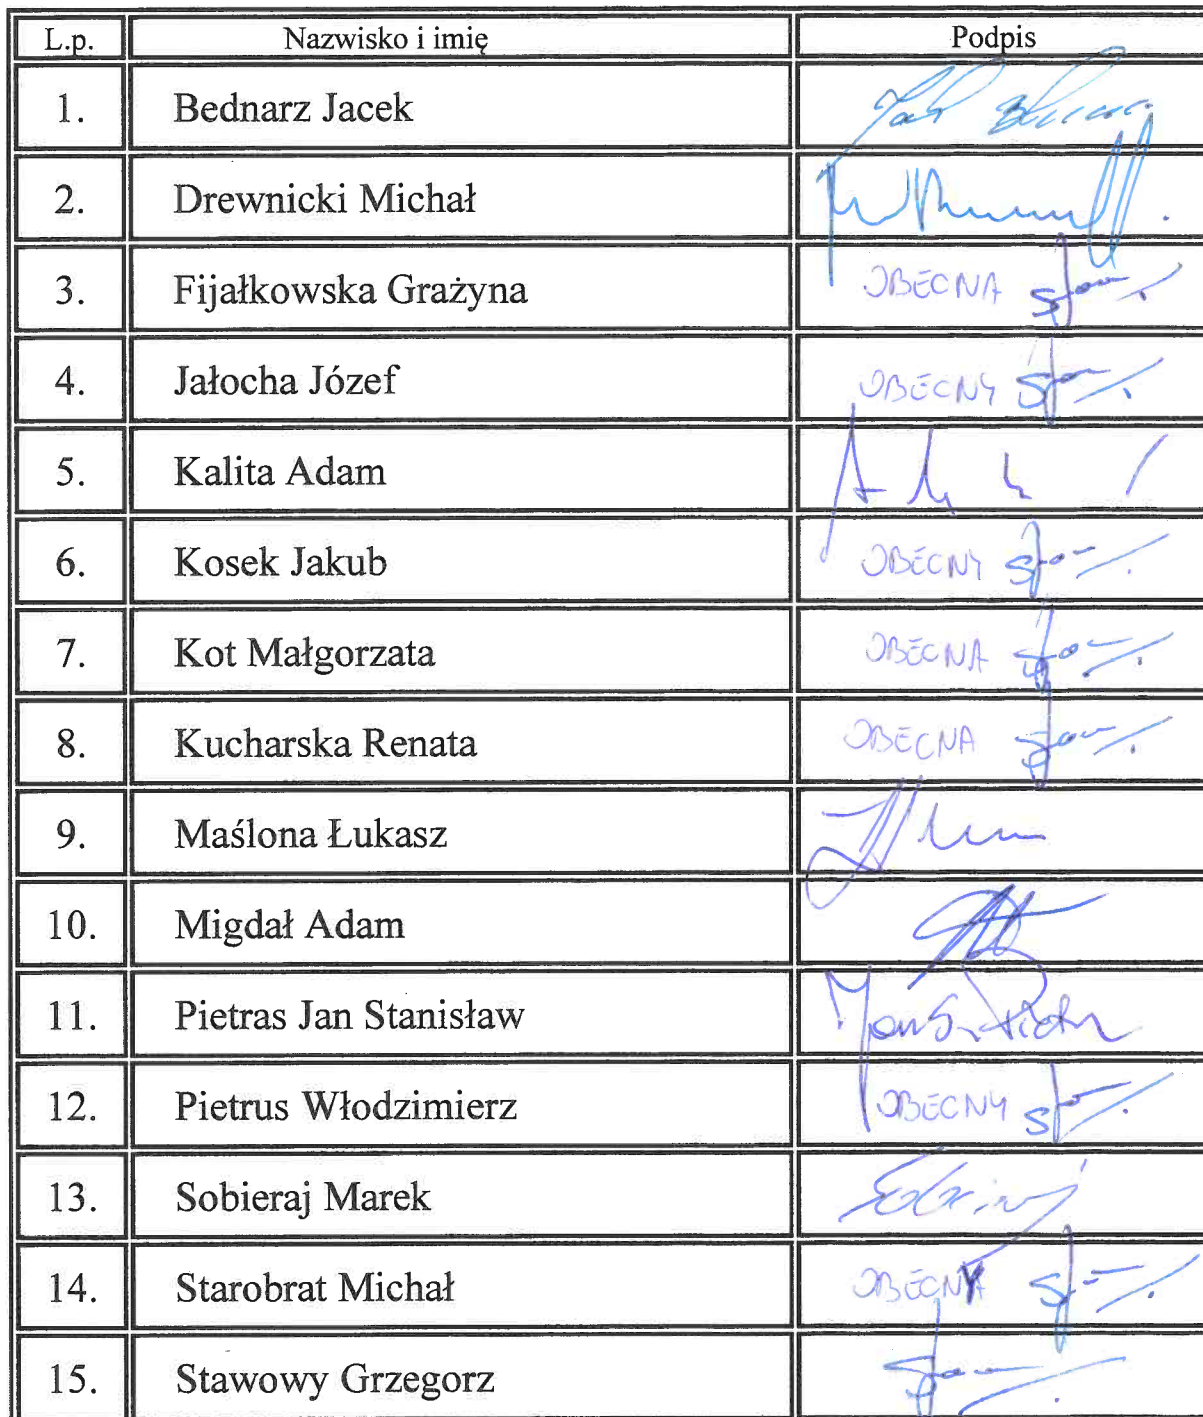 L.p. Nazwisko i imię Podpis
1. Bednarz Jacek
2. Drewnicki Michał
3. Fijałkowska Grażyna OBECNA
4. Jałocha Józef OBECNY
5. Kalita Adam
6. Kosek Jakub OBECNY
7. Kot Małgorzata OBECNA
8. Kucharska Renata OBECNA
9. Maślona Łukasz
10. Migdał Adam
11. Pietras Jan Stanisław
12. Pietrus Włodzimierz OBECNY
13. Sobieraj Marek
14. Starobrat Michał OBECNY
15. Stawowy Grzegorz